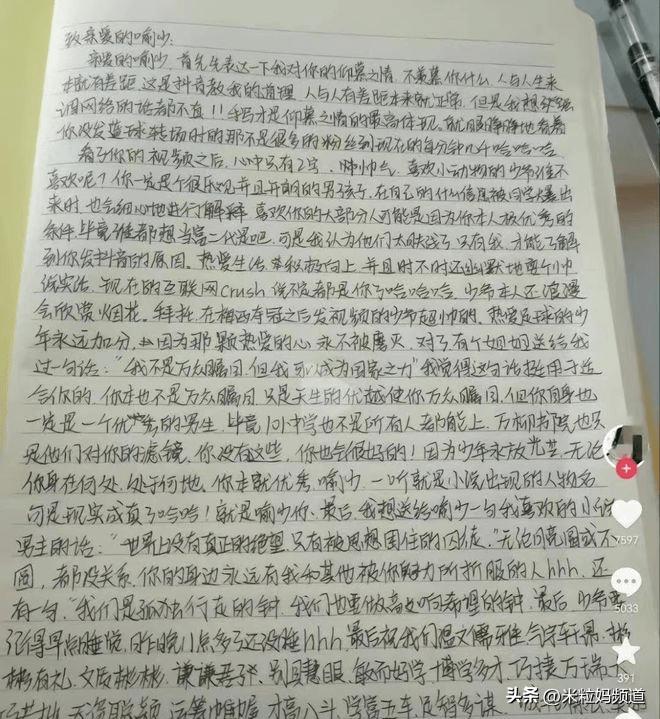 致亲爱的喻少:
亲爱的喻少,首先先表达一下我对你的仰慕之情,不羡慕你什么,人与人生来
本就有差距,这是抖音教我的道理,人与人有差距本来就正常,但是我想强
调网络的话都不直!!我才是仰慕之情的最高体现。就
你没发篮球转场时的那不是很多的粉丝到现在的每分钟几千哈哈哈
看了你的视频之后,心中只有2字,帅帅气,喜欢小动物的少爷谁不
喜欢呢?你一定是个很乐观并且开朗的男孩子,在自己的什么信息被同学爆出
来时,也会细心地进行解释,喜欢你的大部分人可能是因为你本人极优秀的
条件,毕竟谁都想当富二代是吧,可是我认为他们太肤浅了,只有我,才能了解
到你发抖音的原因。热爱生活,积极向上,并且时不时还幽默地整个
活,现在的互联网crush说不定都是你了哈哈哈,少爷本人还浪漫
会欣赏烟花。拜托,在梅西夺冠之后发视频的少爷超帅的。热爱足球的少
年永远加分,因为那颗热爱的心永不被磨灭,对了有个姐姐送给我
过一句话:"我不是万众瞩目,但我可以成为国家之力"我觉得这句话挺适用于送
给你的,你本也不是万众瞩目,只是天生的优越使你万众瞩目,但你自身也
一定是一个优秀的男生,毕竟101中学也不是所有人都能上,万柳书院也只
是他们对你的滤镜,你没有这些,你也会很好的!因为少年永放光芒,无论
你身在何处,处于何地,你本就优秀,喻少,一听就是小说出现的人物名
句是现实成真了哈哈!就是喻少你、最后,我想送给喻少一句我喜欢的小说
男主的话:"世界上没有真正的绝望,只有被思想困住的囚徒。"无论月亮圆或不
圆,都没关系,你的身边永远有我和其他被你努力所折服的人hhh,还
有一句,"我们是孤独行走的钟,我们也要做高处响希望的钟,最后,少爷要
记得早点睡觉,昨晚11点多了还没睡hhh,最后祝我们温文儒雅,气宇轩昂,彬
彬有礼,文质彬彬,谦谦君子,别具慧眼,敏而好学,博学多才,巧捷万端,大
天资聪颖,运筹帷幄,才高八斗,学富五车,足智多谋
7597
5033
391
头条 @米粒妈频道